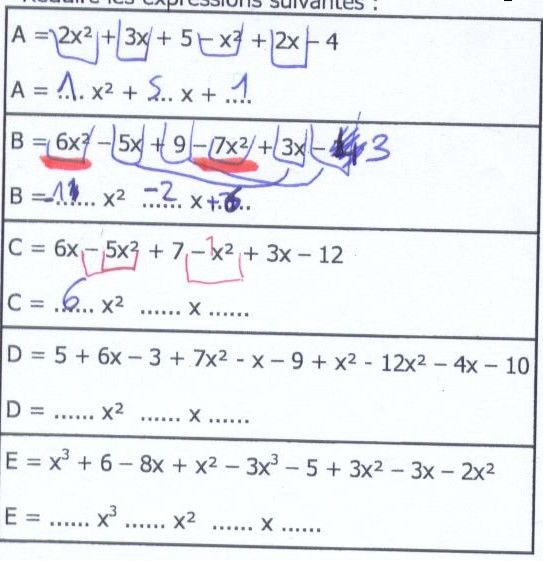 Réduire les expressions suivantes :
A = 2x² + 3x + 5 – x² + 2x – 4
A = .1.. x² + 5.. x + .1..
B = 6x² – 5x + 9 – 7x² + 3x – 3
B = -1...... x² ..-2.... x +.6..
C = 6x – 5x² + 7 – 1x² + 3x – 12
C = .6..... x² ...... x ......
D = 5 + 6x – 3 + 7x² - x – 9 + x² - 12x² – 4x – 10
D = ...... x² ...... x ......
E = x³ + 6 – 8x + x² – 3x³ – 5 + 3x² – 3x – 2x²
E = ...... x³ ...... x² ...... x ......